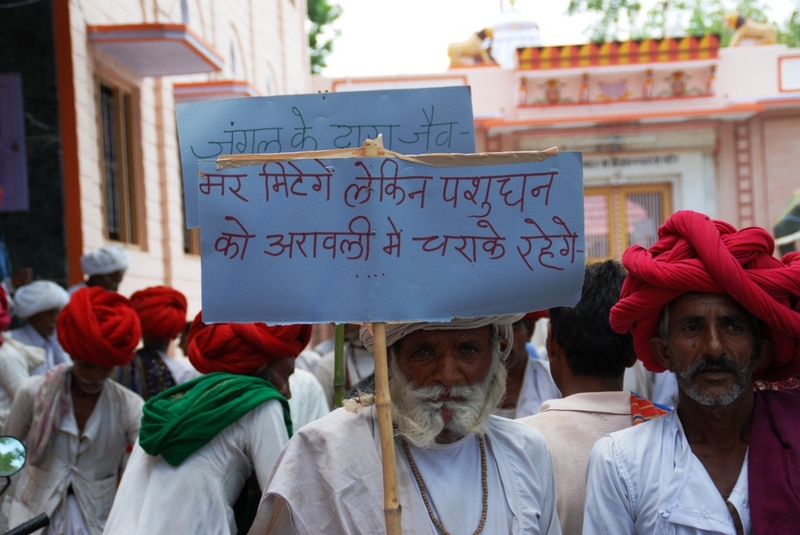 जंगल के दावा जैव-
मर मिटेगें लेकिन पशुधन
को अरावली में चराके रहेगे-
....